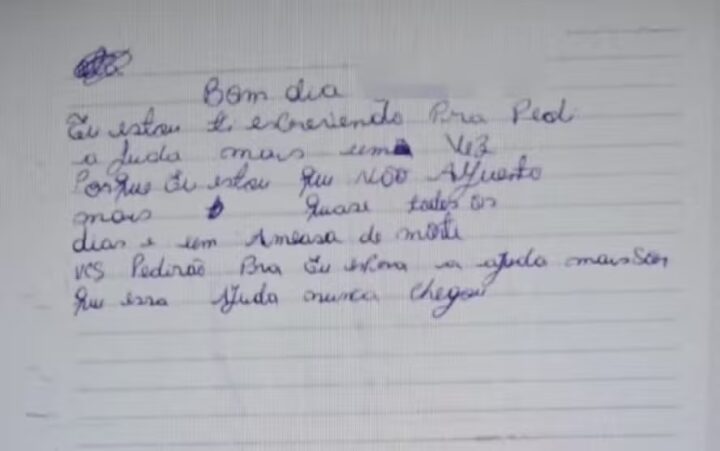 Bom dia
Eu estou ti escrevendo Pra Pedi
a Juda mais uma Vez
Porque Eu estou que NÃO Aguento
mais quase todos os
dias e um Ameasa de morte
vcs Pedirão Pra Eu espera a ajuda mais Son
que essa Ajuda nunca chegou